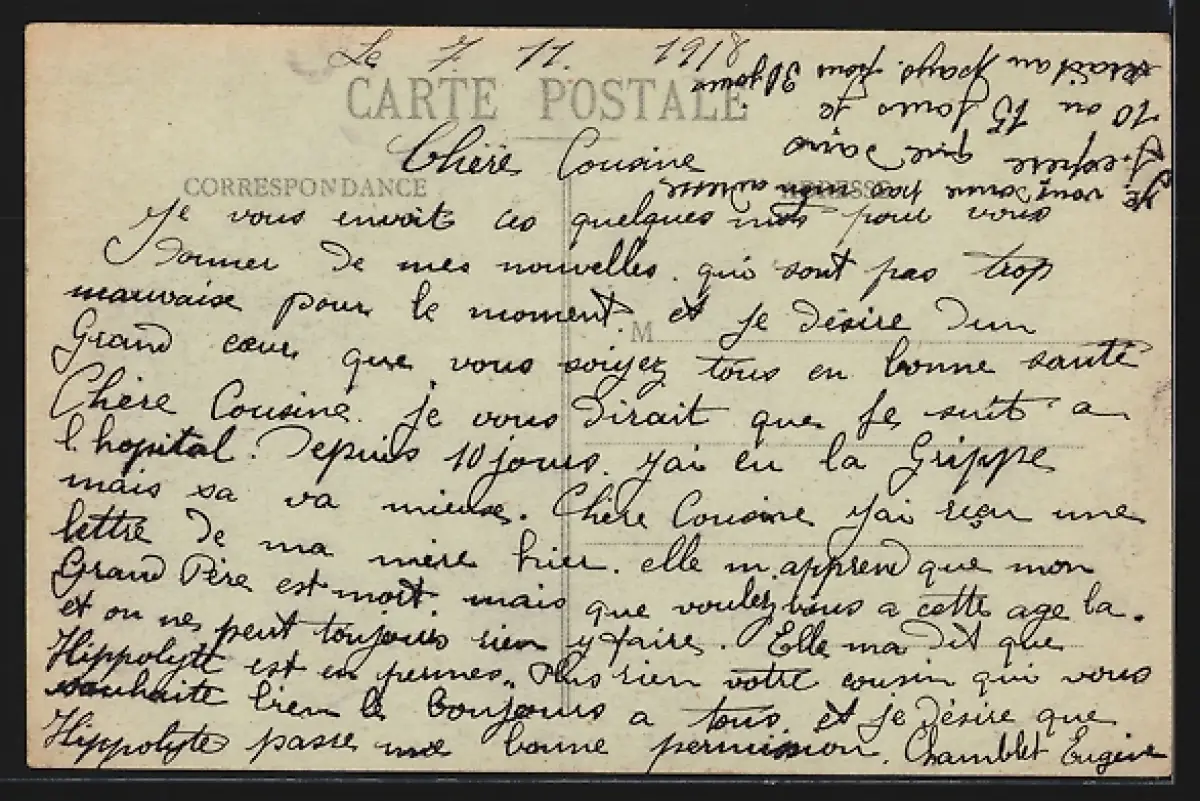 Le 7. 11. 1918
CARTE POSTALE
Chère Cousine
CORRESPONDANCE
ADRESSE
Je vous envoit ces quelques mots pour vous
Donner de mes nouvelles. qui sont pas trop
mauvaise pour le moment. et je désire dun
Grand cœur que vous soiyez tous en bonne santé
M
Chère Cousine. je vous dirait que je suit a
l.hopital. Depuis 10 jours. j'ai eu la Grippe
mais sa va mieux. Chère Cousine j'ai reçu une
lettre de ma mère hier. elle m.apprend que mon
Grand Père est mort. mais que voulez vous a cette age la.
et on ne peut toujours rien y faire. Elle ma dit que
Hippolyte est en permes. Plus rien votre cousin qui vous
souhaite bien le bonjours a tous. et je désire que
Hippolyte passe une bonne permission. Chamblet Eugène
Je vous donne pas mon adresse
J.espère que dans
10 ou 15 jours je
serait au pays. pour 30 jours